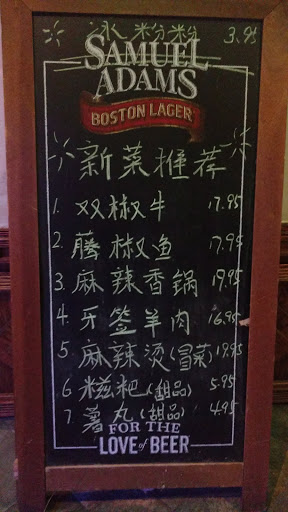 冰粉粉 3.95
SAMUEL
ADAMS
BOSTON LAGER
新菜推荐
1. 双椒牛 17.95
2. 藤椒鱼 17.95
3 麻辣香锅 19.95
4. 牙签羊肉 16.95
5 麻辣烫(冒菜) 19.95
6 糍粑(甜品) 5.95
7. 薯丸(甜品) 4.95
FOR THE
LOVE of BEER